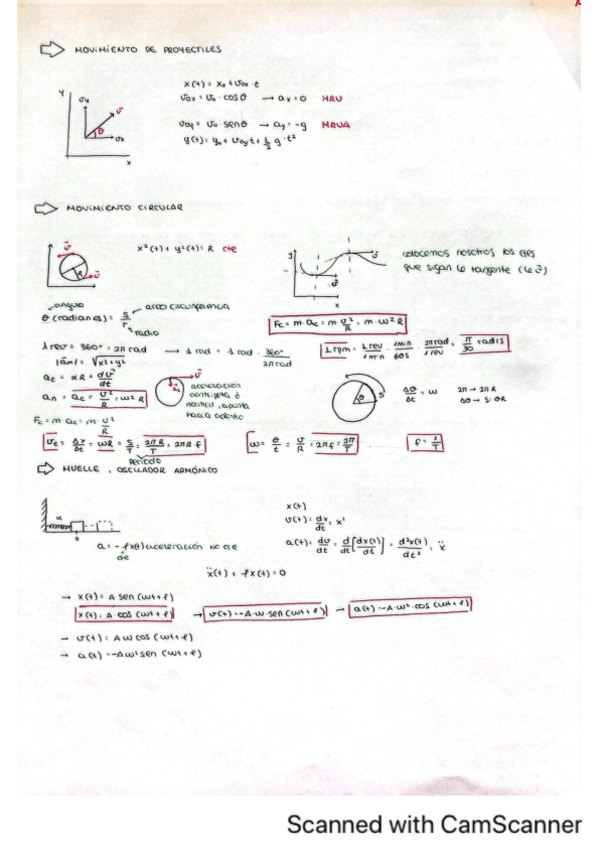 ⇨ MOVIMIENTO DE PROYECTILES
y
v_y
v
θ
v_x
x
x(t) = x₀ + v₀ₓ · t
v₀ₓ = v₀ · cosθ → aₓ = 0 MRU
v₀y = v₀ · senθ → a_y = -g MRUA
y(t) = y₀ + v₀y t + 1/2 g · t²
⇨ MOVIMIENTO CIRCULAR
x²(t) + y²(t) = R cte
colocamos nosotros los ejes
que sigan la tangente (la v⃗)
angulo
arco circunferencia
θ (radianes) = s/r
radio
Fc = m · ac = m v²/R = m · ω² R
1 rev = 360° = 2π rad → 1 rad = 1 rad · 360°/2π rad
1 rpm = 1 rev/1 min · 1 min/60 s · 2π rad/1 rev = π/30 rad/s
at = αR = dv/dt
an = ac = v²/R = ω² R
aceleración
centrípeta o
normal, apunta
hacia adentro
Δθ/Δt = ω
2π → 2πR
Δθ → s = θR
Fc = m · ac = m v²/R
= ωR = s/T = 2πR/T = 2πR · f
periodo
ω = θ/t = v/R = 2πf = 2π/T
f = 1/T
⇨ MUELLE, OSCILADOR ARMÓNICO
0
x(t)
v(t) = dx/dt = x'
a = - f x(t) aceleración no cte
a(t) = dv/dt = d/dt [dx(t)/dt] = d²x(t)/dt² = ẍ
ẍ(t) + f x(t) = 0
→ x(t) = A sen (ωt + φ)
x(t) = A cos (ωt + φ) → v(t) = -A · ω · sen (ωt + φ) → a(t) = -A · ω² · cos (ωt + φ)
→ v(t) = A ω cos (ωt + φ)
→ a(t) = -A ω² sen (ωt + φ)
Scanned with CamScanner